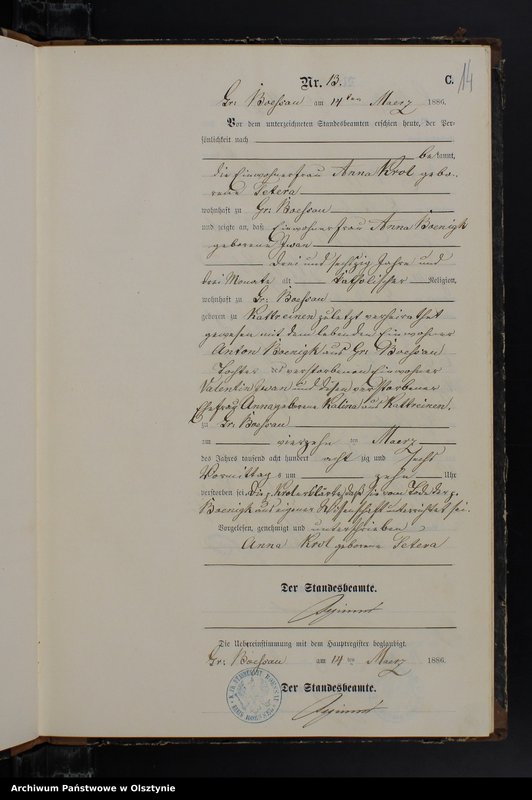 14
Nr. 13. C.
Gr: Boessau am 14 ten Maerz 1886.
Vor dem unterzeichneten Standesbeamten erschien heute, der Per-
sönlichkeit nach
bekannt,
die Einwohnerfrau Anna Krol gebo-
rene Setera
wohnhaft zu Gr: Boessau
und zeigte an, daß Einwohnerfrau Anna Boenigk
geborene Iwan
drei und sechszig Jahre und
drei Monate alt katholischer Religion,
wohnhaft zu Gr: Boessau
geboren zu Kattreinen zuletzt verheirathet
gewesen mit dem lebenden Einwohner
Anton Boenigk aus Gr: Boessau
Tochter des verstorbenen Einwohner
Valentin Iwan und dessen verstorbener
Ehefrau Anna geborene Kalina aus Kattreinen.
zu Gr: Boessau
am vierzehn ten Maerz
des Jahres tausend acht hundert acht zig und sechs
Vormittags um zehn Uhr
verstorben sei. Die Krol erklärte, daß sie vom Tode der p.
Boenigk aus eigener Wissenschaft unterrichtet sei.
Vorgelesen, genehmigt und unterschrieben
Anna Krol geborene Setera
Der Standesbeamte.
Die Uebereinstimmung mit dem Hauptregister beglaubigt.
Gr: Boessau am 14 ten Maerz 1886.
Der Standesbeamte.
Archiwum Państwowe w Olsztynie